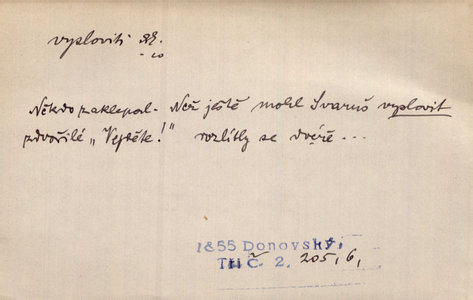 vysloviti
Někdo zaklepal. Než ještě mohl Svaruš vyslovit
zdvořilé „Vejděte!" rozlítly se dvéře...
1855 Donovský,
Tři Č. 2. 205, 6,